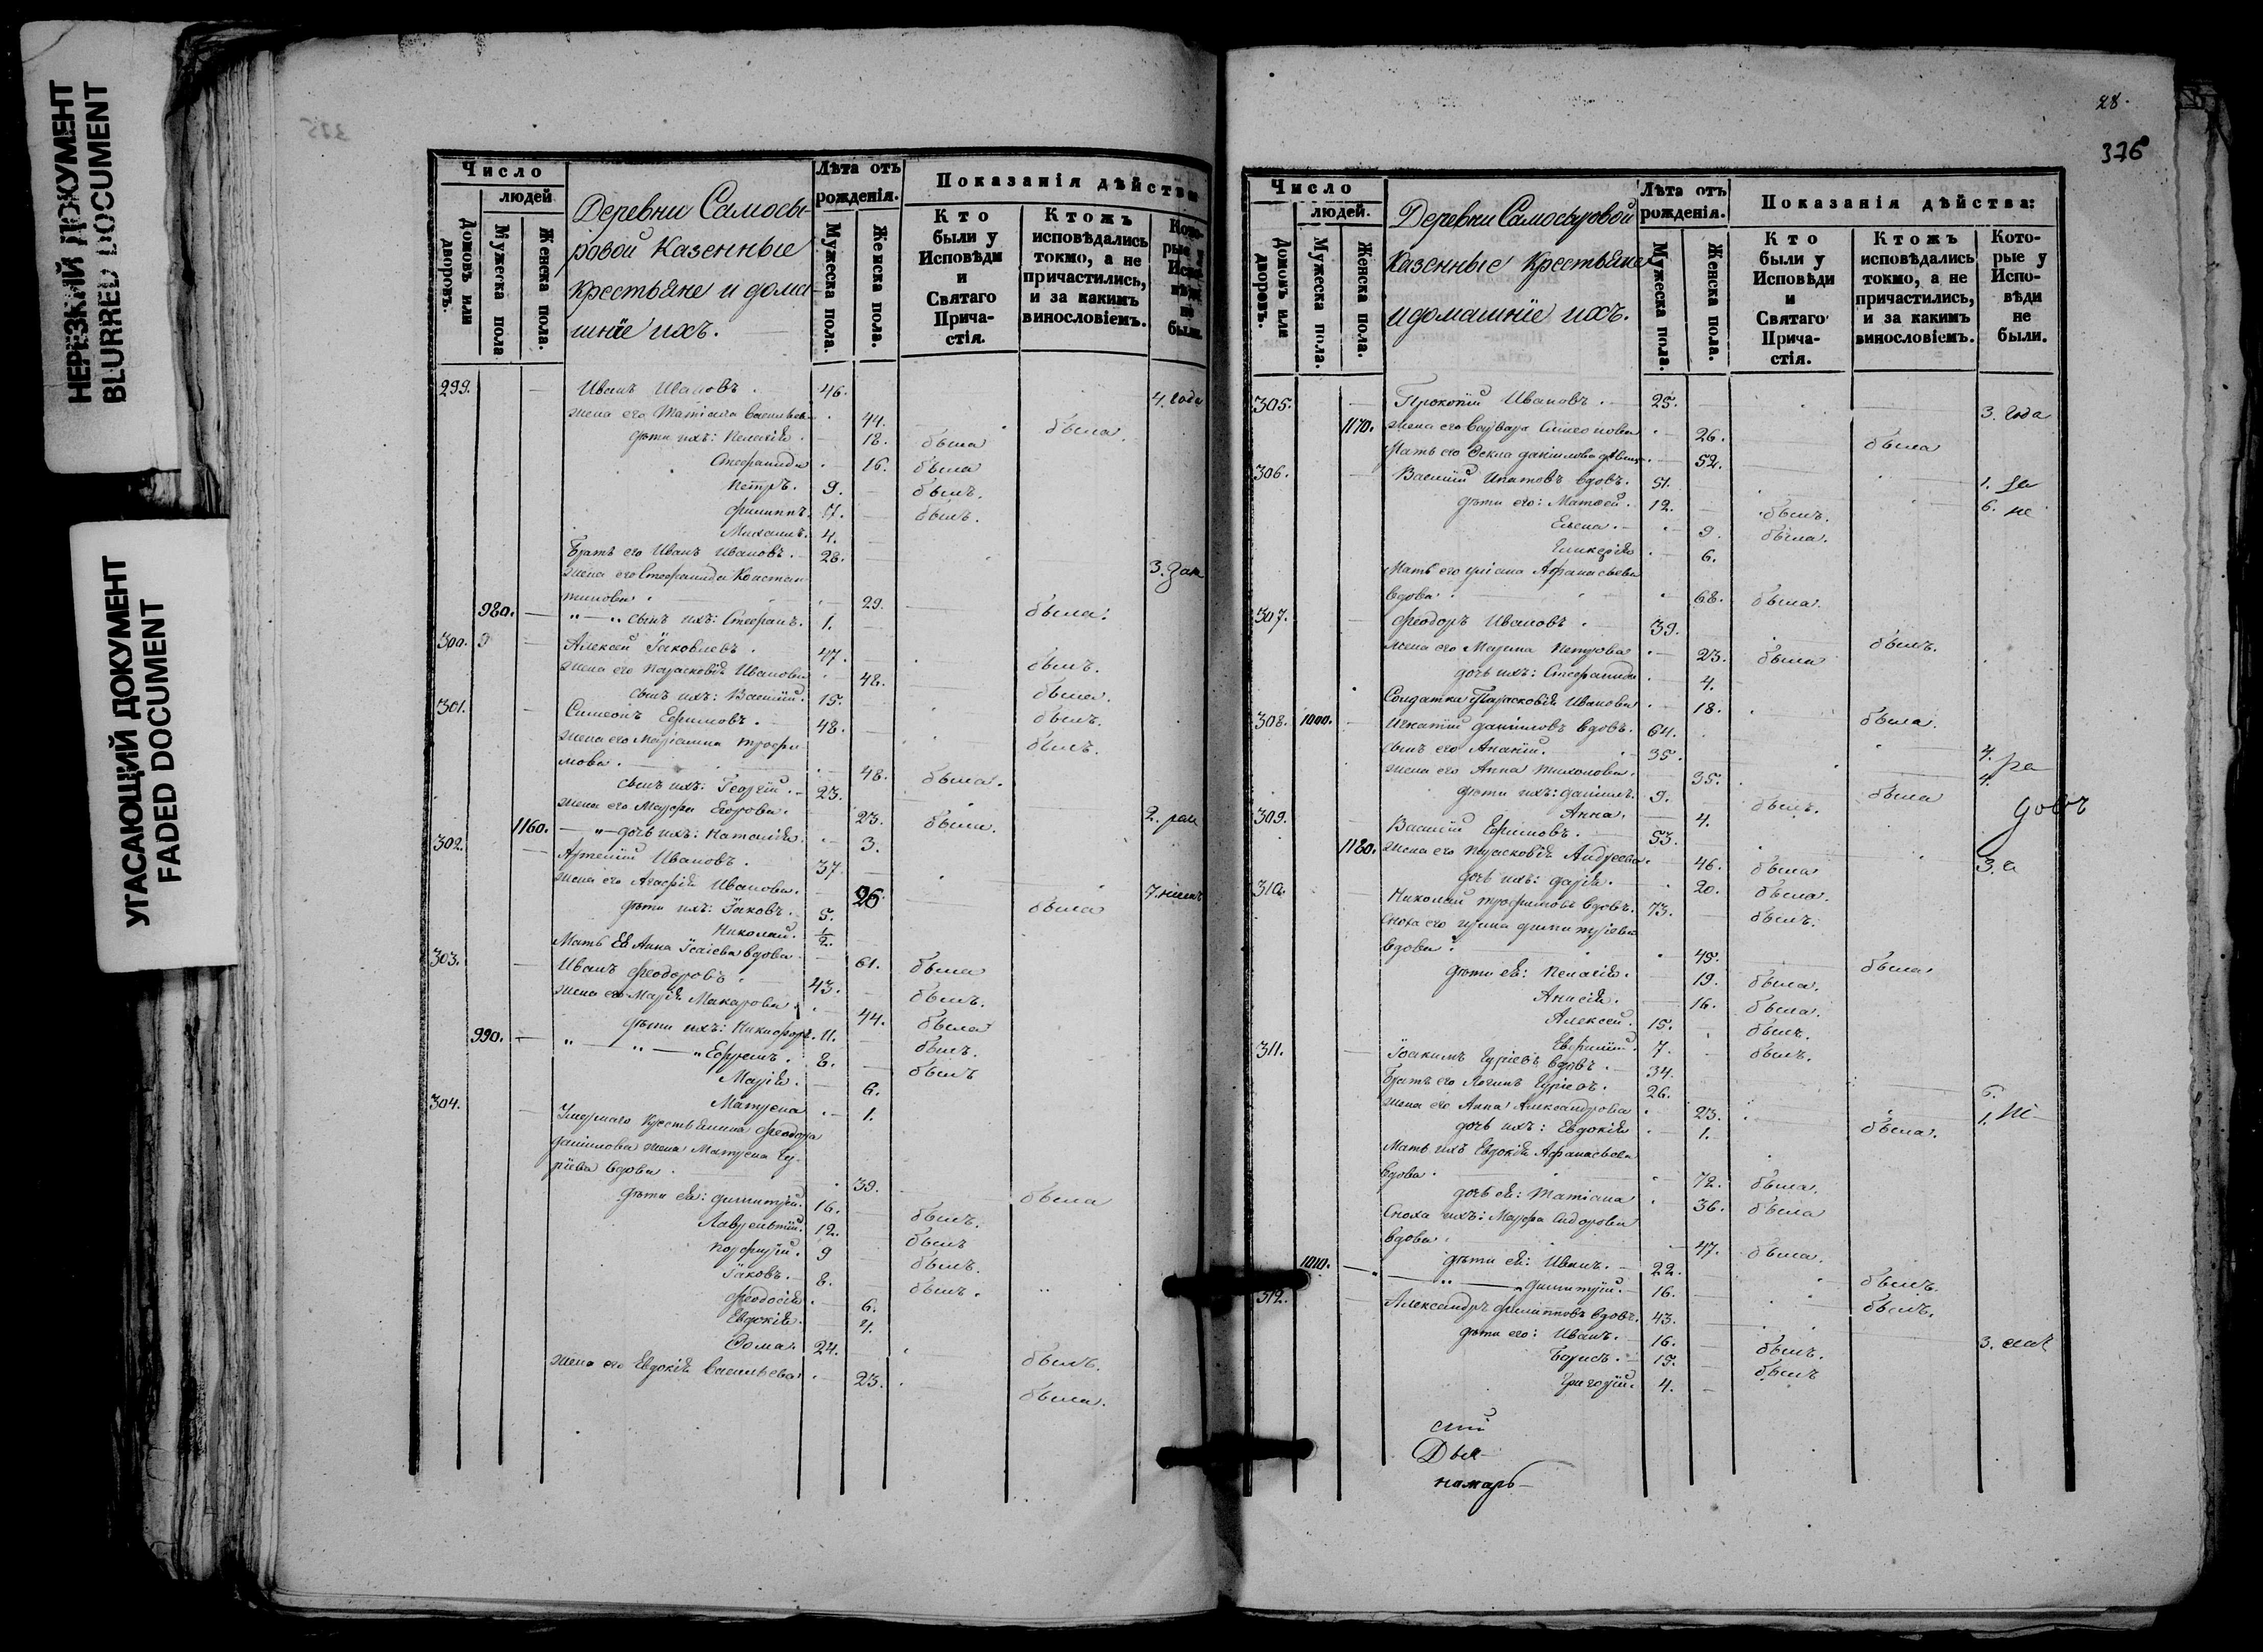 НЕРЕЗКИЙ ДОКУМЕНТ
BLURRED DOCUMENT
УГАСАЮЩИЙ ДОКУМЕНТ
FADED DOCUMENT
Число
людей
Домовъ или дворовъ.
Мужеска пола
Женска пола.
Деревни Самосы-
ровой Казенные
крестьяне и дома-
шнїе ихъ.
Лѣта отъ рожденія.
Мужеска пола.
Женска пола.
Показанія дѣйства
Кто были у Исповѣди и Святаго Прича-стія.
Ктожъ исповѣдались токмо, а не причастились, и за какимъ винословіемъ.
Кото-рые
были.
299. Иванъ Ивановъ. 46. 4. года
жена его Татіана Васильев 44. была.
дѣти ихъ: Пелагія. 18. была
Стефанида 16. была
Петръ. 9. былъ.
Филиппъ. 7. былъ.
Михаилъ. 4.
Братъ его Иванъ Ивановъ. 28. 3. зан
жена его Стефанида Констан-
тинова. 29. была.
980. „ — „ сынъ ихъ: Стефанъ. 1.
300. Алексей Їаковлевъ. 47. былъ.
жена его Параскевїя Иванова 48. была.
сынъ ихъ: Василїй. 15. былъ.
301. Симеонъ Ефимовъ. 48. былъ.
жена его Марїамна Трофи-
мова. 48. была.
сынъ ихъ: Георгїй. 23. 2.
жена его Марфа Егорова. 23. была.
1160. — „ — дочь ихъ: Наталїя. 3.
302. Артемїй Ивановъ. 37. 7.
жена его Агафїя Иванова. 26. была
дѣти ихъ: Їаковъ. 5.
Николай. 1/2.
Мать Ея Анна Їсаїева вдова. 61. была
303. Иванъ Феодоровъ. 43. былъ.
жена его Марїя Макарова. 44. была
дѣти ихъ: Никифоръ. 11. былъ.
990. „ — „ — „ Ефремъ. 8. былъ
Марїя. 6.
Матрена 1.
304. Умершаго Крестьянина Феодора
Данїилова жена Матрена Гу-
рїева вдова. 39. была
дѣти ея: Димитрїй. 16. былъ.
Лаврентїй. 12. былъ
Порфирїй. 9 былъ.
Їаковъ. 8. былъ.
Феодосїя. 6.
Евдокїя. 4.
Ѳома. 24. былъ.
жена его Евдокїя Васильева 23. была.
28.
376
Число
людей.
Домовъ или дворовъ.
Мужеска пола.
Женска пола.
Деревни Самосыровой
Казенные Крестьяне
и домашнїе ихъ.
Лѣта отъ рожденія.
Мужеска пола.
Женска пола.
Показанія дѣйства:
Кто были у Исповѣди и Святаго Прича-стія.
Ктожъ исповѣдались токмо, а не причастились, и за какимъ винословіемъ.
Кото-рые у Испо-вѣди не были.
305. Прокопїй Ивановъ. 25. 3. года
1170. жена его Варвара Симеонова 26. была
Мать его Ѳекла Данїилова 52.
306. Василїй Ипатовъ вдовъ. 51.
дѣти его: Матвей. 12. былъ.
Елена. 9. была.
Гликерїя 6.
Мать его Улїана Афанасьева
вдова. 68. была.
307. Феодоръ Ивановъ. 39. былъ.
жена его Марина Петрова 23. была
дочь ихъ: Стефанида 4.
Солдатка Параскевїя Иванова 18. была.
308. 1000. Игнатїй Данїиловъ вдовъ. 64. 4.
сынъ его Ананїй. 35. 4.
жена его Анна Тихонова. 35. была
дѣти ихъ: Данїилъ. 9. былъ.
Анна. 4.
309. Василїй Ефимовъ. 53. 3.
1180. жена его Параскевїя Андреева. 46. была
дочь ихъ: Дарїя. 20. была.
310. Николай Трофимовъ вдовъ. 73. былъ.
Сноха его Ирина Димитрїева
вдова. 45. была
дѣти ея: Пелагїя. 19. была.
Анисїя. 16. была.
Алексей. 15. былъ.
Евфимїй. 7. былъ.
311. Їоакимъ Гурїевъ вдовъ. 34. 6.
Братъ его Логинъ Гурїевъ. 26. 1.
жена его Анна Александрова 23. была.
дочь ихъ: Евдокїя 1.
Мать ихъ Евдокїя Афанасьева
вдова. 72. была.
дочь ея: Татїана 36. была
Сноха ихъ: Марфа Сидорова
вдова. 47. была.
1010. дѣти ея: Иванъ. 22. былъ.
„ — „ — Димитрїй. 16. былъ.
312. Александръ Филипповъ вдовъ. 43. 3.
дѣти его: Иванъ. 16. былъ.
Борисъ. 15. былъ
Григорїй. 4.
сїй
Дья-